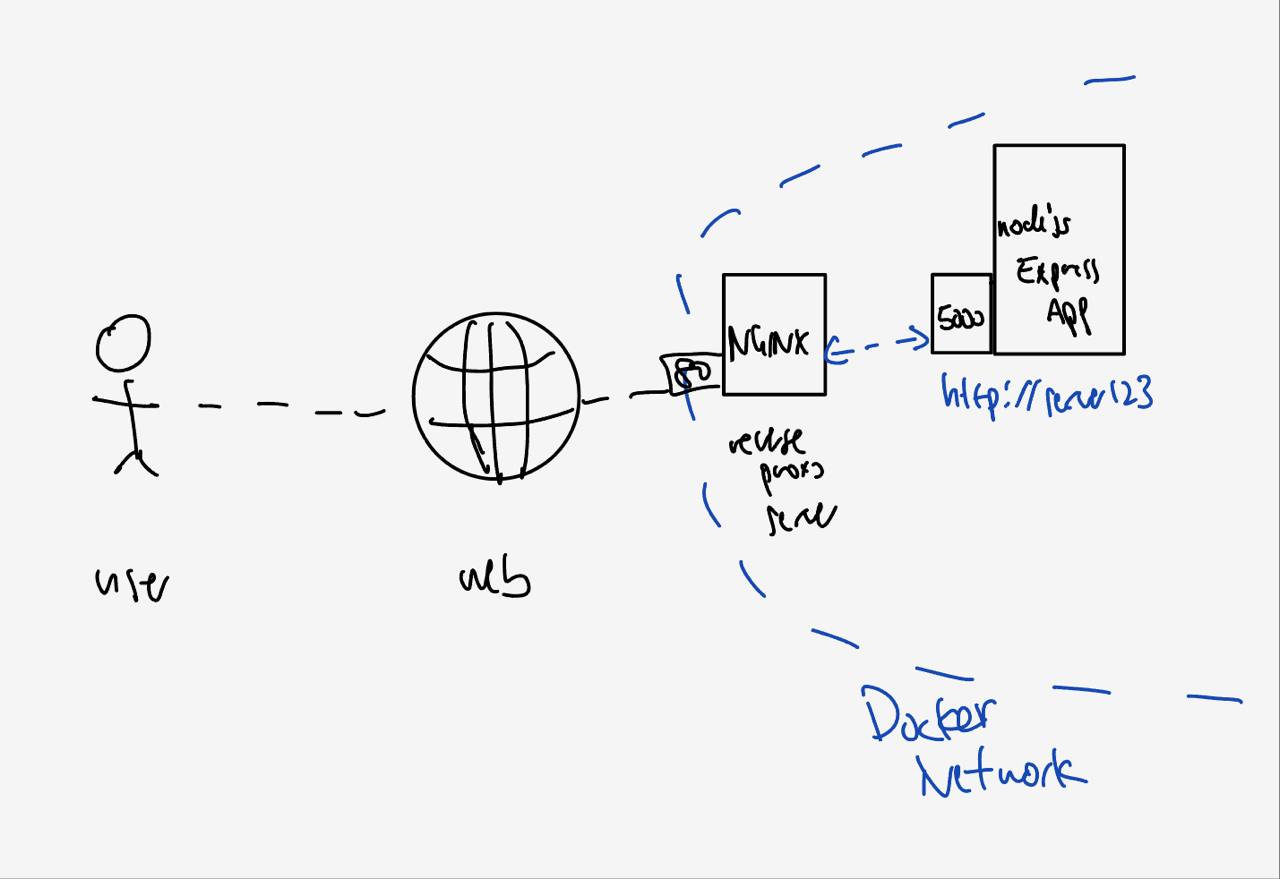 user
web
80
NGINX
reverse
proxy
server
5000
nodejs
Express
App
http://server123
Docker
Network